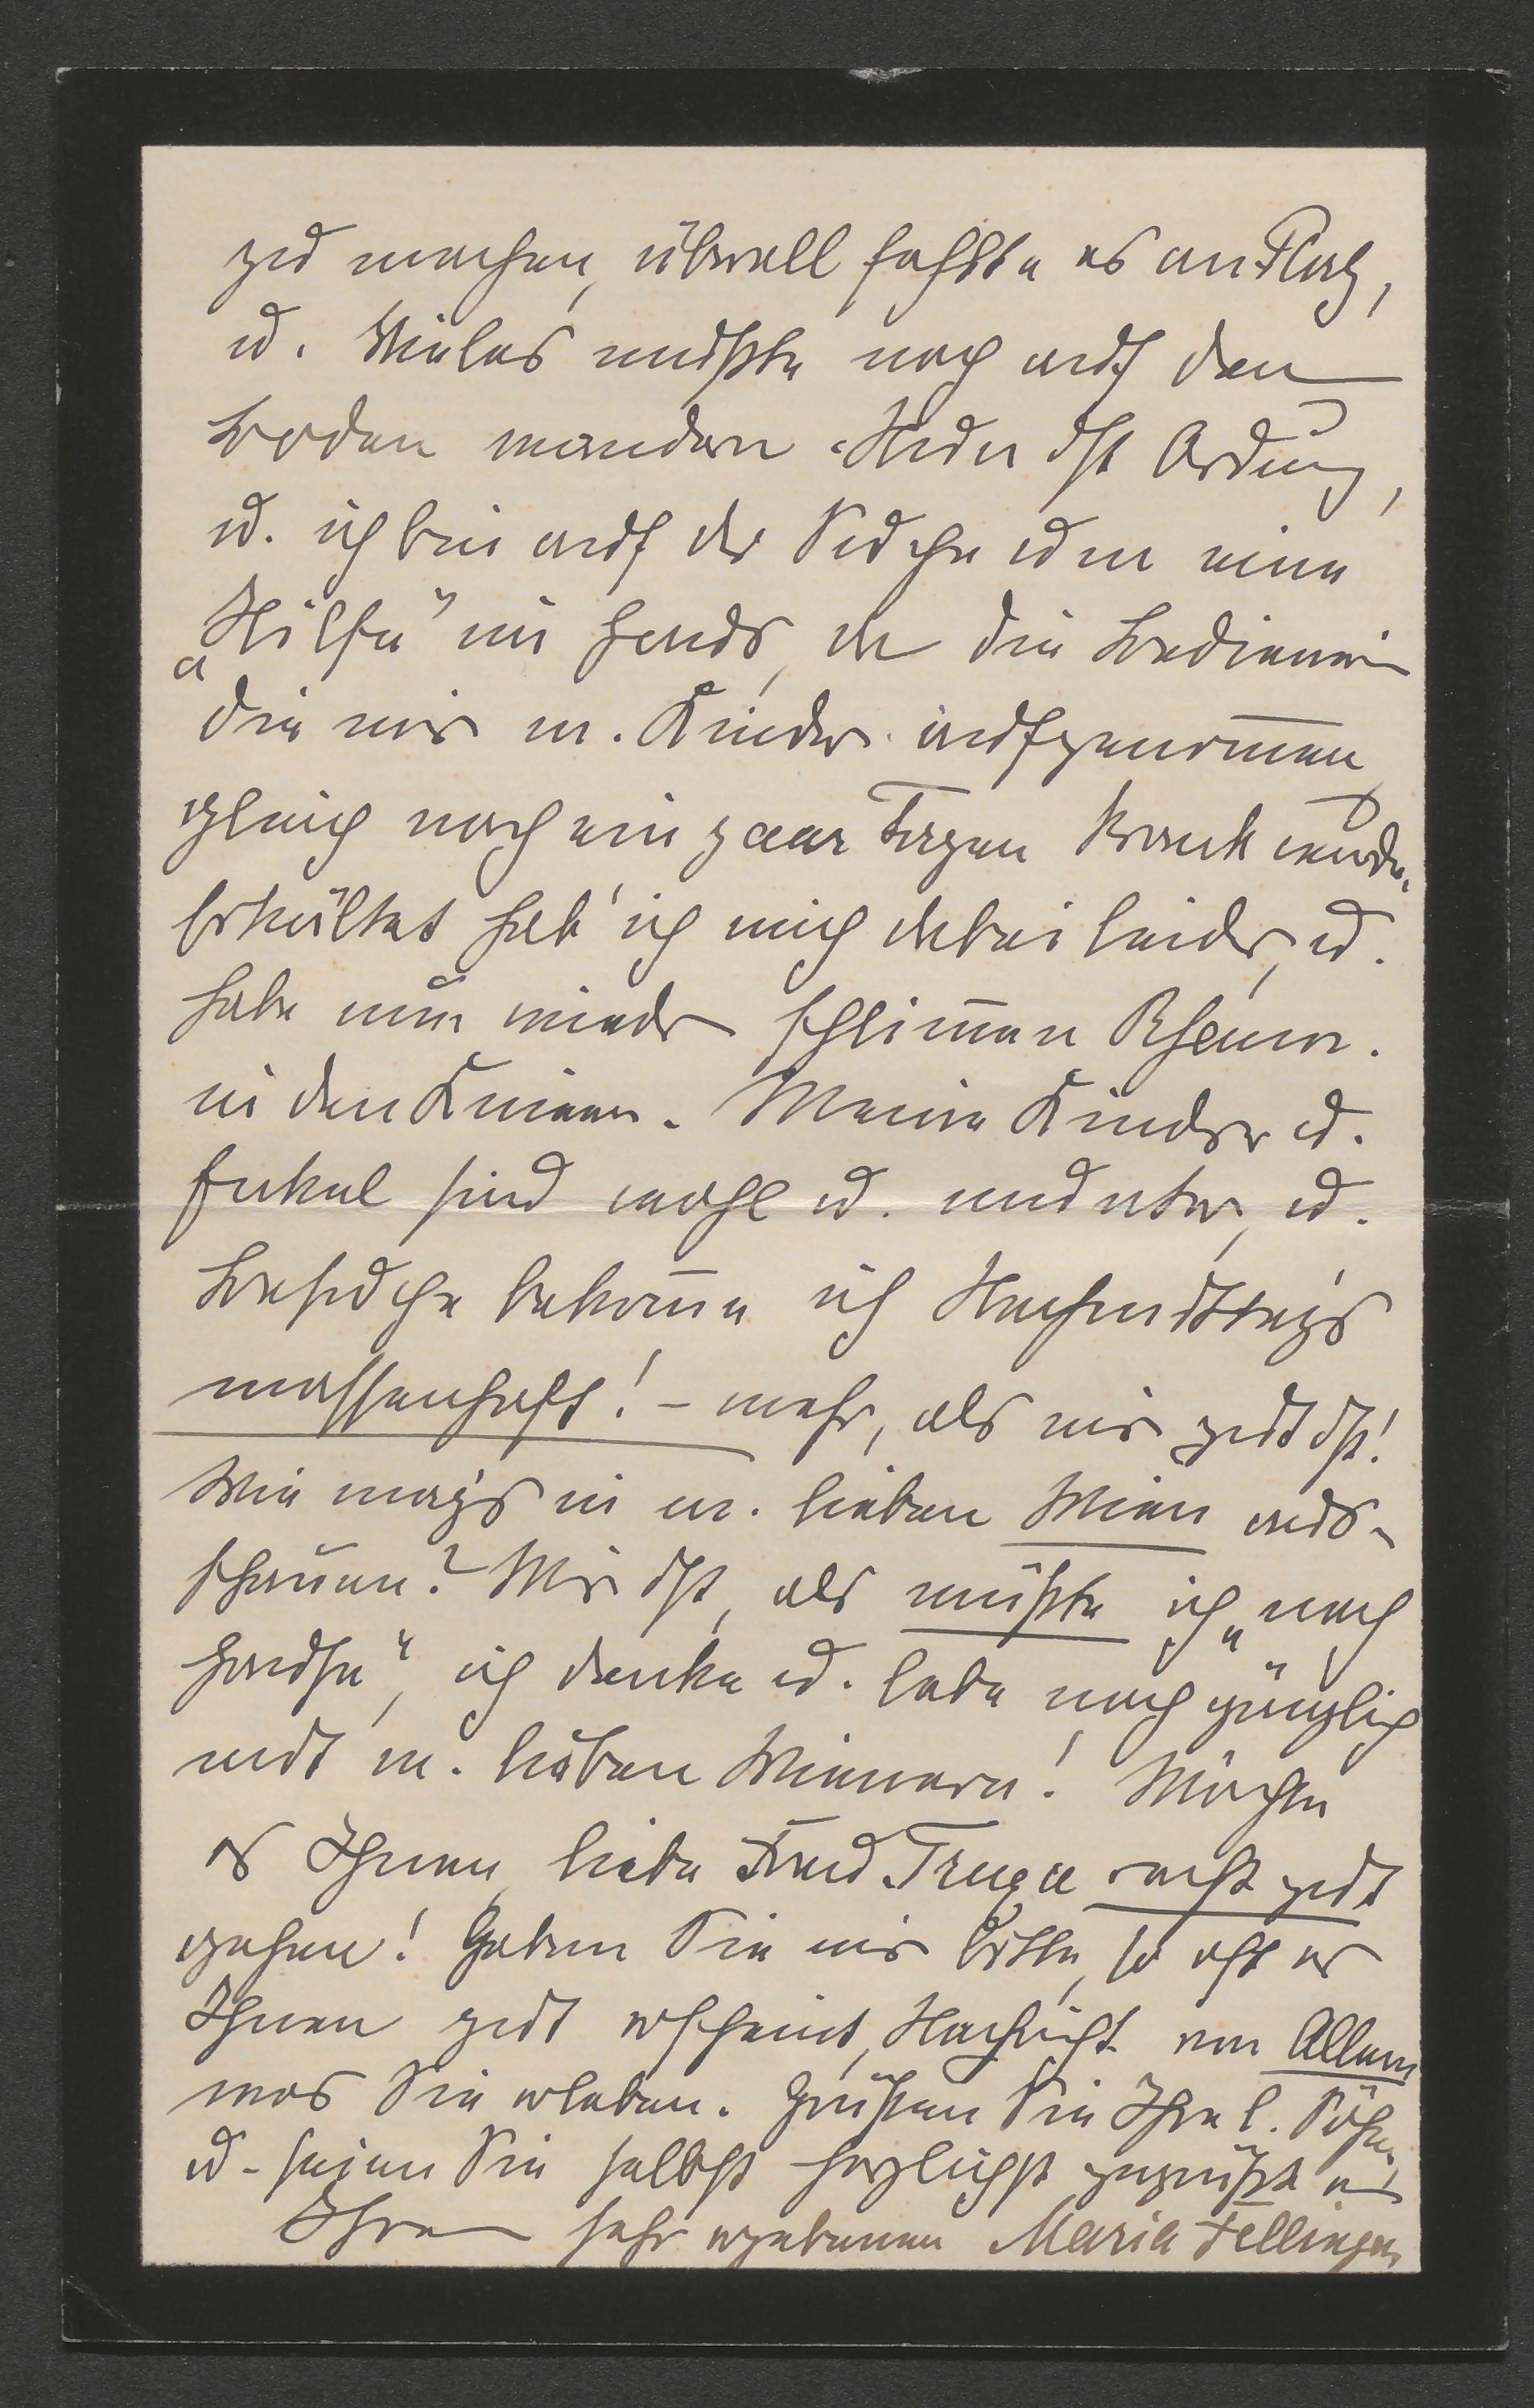 zu machen, überall fehlte es an Platz,
u. Vieles mußte noch auf den
Boden wandern. Nun ist Ordnung,
u. ich bin auf der Suche um eine
„Hilfe" im Haus, da die Bedienerin
die mir m. Kinder aufgenommen
gleich nach ein paar Tagen krank wurde.
Erkältet hab' ich mich dabei leider, u.
habe nun wieder schlimmen Rheum.
in den Knieen. Meine Kinder u.
Enkel sind wohl u. munter, u.
Besuche bekomme ich Nachmittags
massenhaft! – mehr, als mir gut ist!
Wie mag's in m. lieben Wien aus-
schauen? Mir ist, als müßte ich „nach
Hause", ich denke u. lebe noch gänzlich
mit m. lieben Wienern! Möge
es Ihnen, liebe Frau Truxa recht gut
gehen! Geben Sie mir bitte, so oft es
Ihnen gut erscheint, Nachricht von Allem
was Sie erleben. Grüßen Sie Ihre l. Söhne,
u. seien Sie selbst herzlichst gegrüßt von
Ihrer sehr ergebenen Maria Fellinger